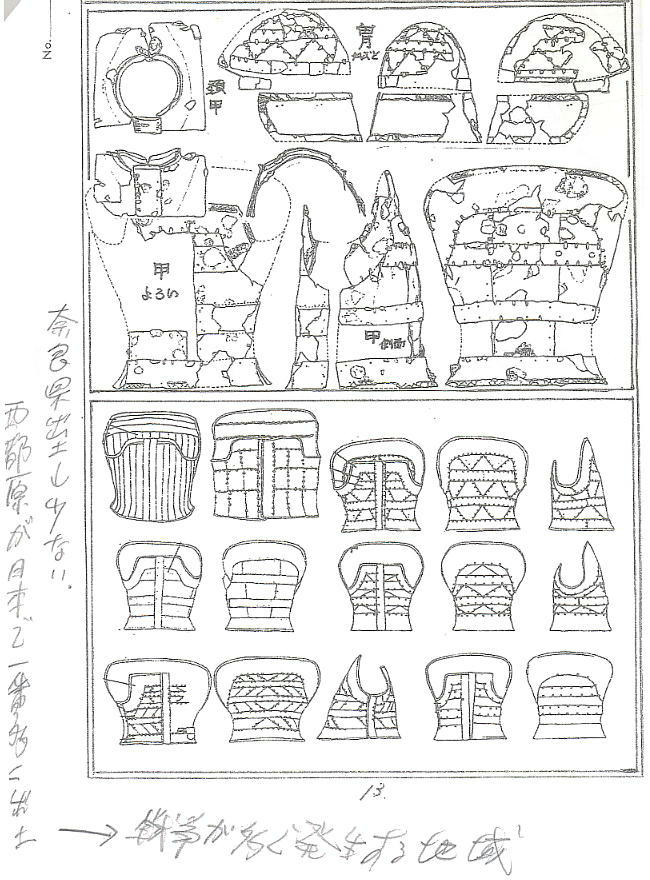 No.
頚甲
冑
かぶと
甲
よろい
甲側面
13.
奈良県出土し少ない.
西都原が日本で一番多く出土
→ 戦争が多く発生する地域